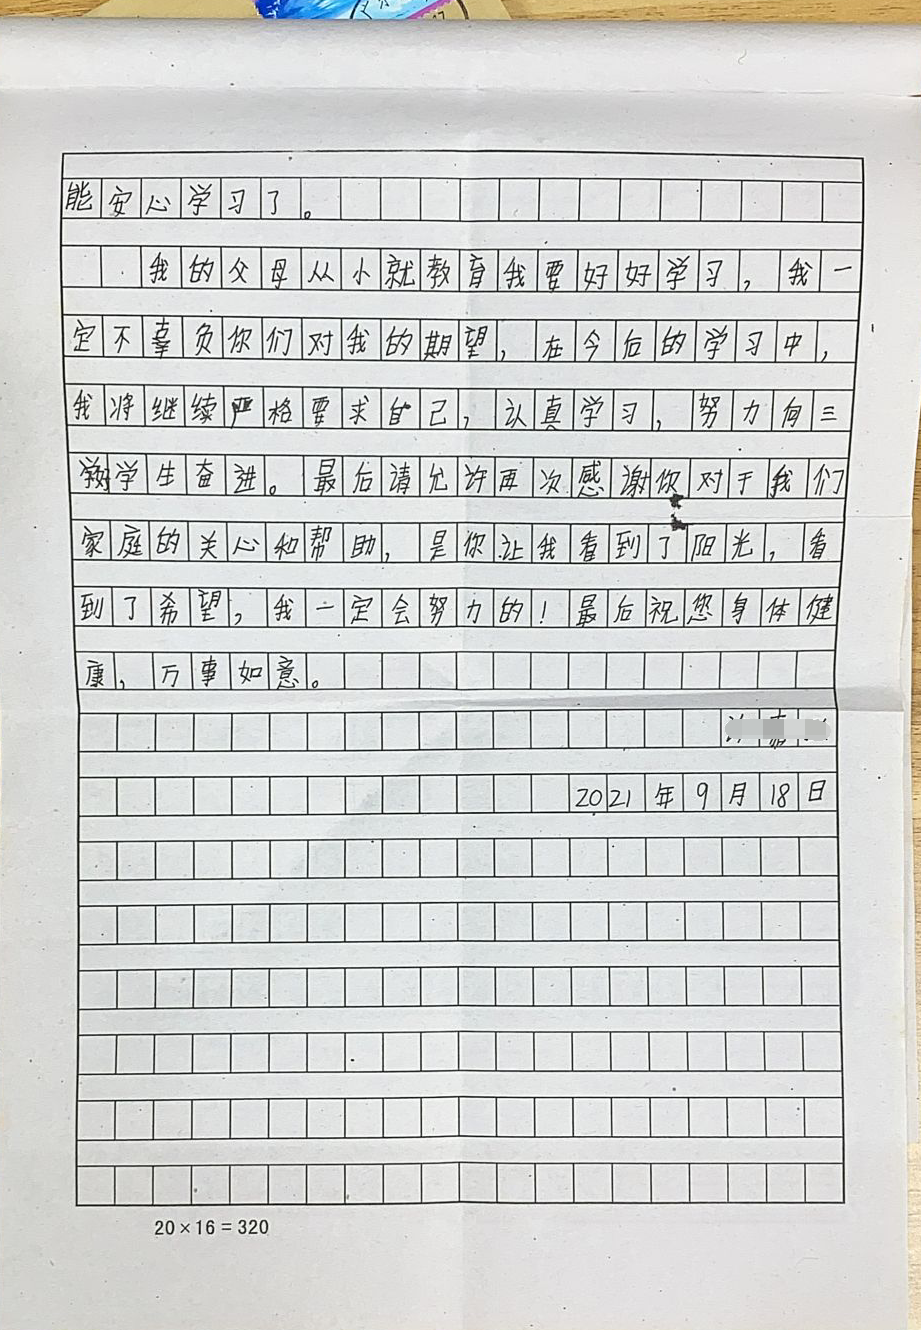 能安心学习了。
我的父母从小就教育我要好好学习，我一
定不辜负你们对我的期望，在今后的学习中，
我将继续严格要求自己，认真学习，努力向三
好学生奋进。最后请允许再次感谢你对于我们
家庭的关心和帮助，是你让我看到了阳光，看
到了希望，我一定会努力的！最后祝您身体健
康，万事如意。
2021年9月18日
20×16=320